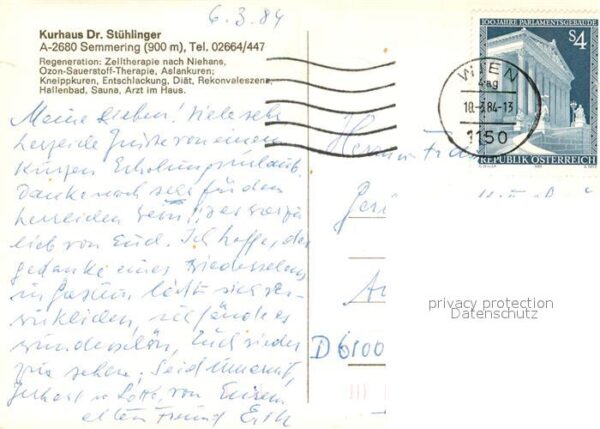 6.3.84
Kurhaus Dr. Stühlinger
A-2680 Semmering (900 m), Tel. 02664/447
Regeneration: Zelltherapie nach Niehans,
Ozon-Sauerstoff-Therapie, Aslankuren;
Kneippkuren, Entschlackung, Diät, Rekonvaleszenz,
Hallenbad, Sauna, Arzt im Haus.
100 JAHRE PARLAMENTSGEBÄUDE
S 4
REPUBLIK ÖSTERREICH
WIEN
10.-3.84-13
1150
Meine Lieben! Viele sehr
herzliche Grüße von einem
kurzen Erholungsurlaub.
Danke noch sehr für den
herrlichen Wein! Das war zu
lieb von Euch. Ich hoffe, der
Gedanke eines Wiedersehens
in Gastein läßt sich ver-
wirklichen, ich fände es
wunderschön, Euch wieder
zu sehen. Seid umarmt,
Gerhard u. Lotte, von Eurem
alten Freund
Herrn
D 6100
privacy protection
Datenschutz